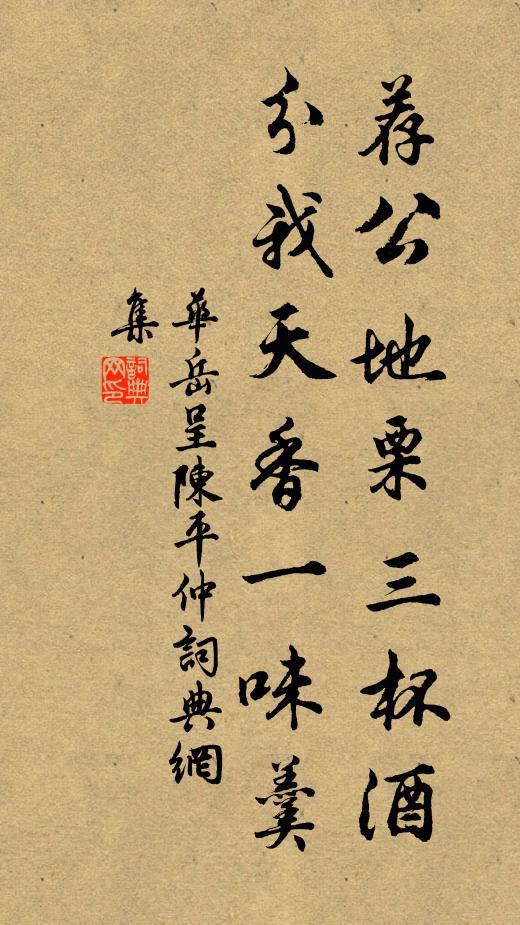 荐公地栗三杯酒
分我天香一味羹
華岳呈陳平仲詞典網
集
詞典
网印